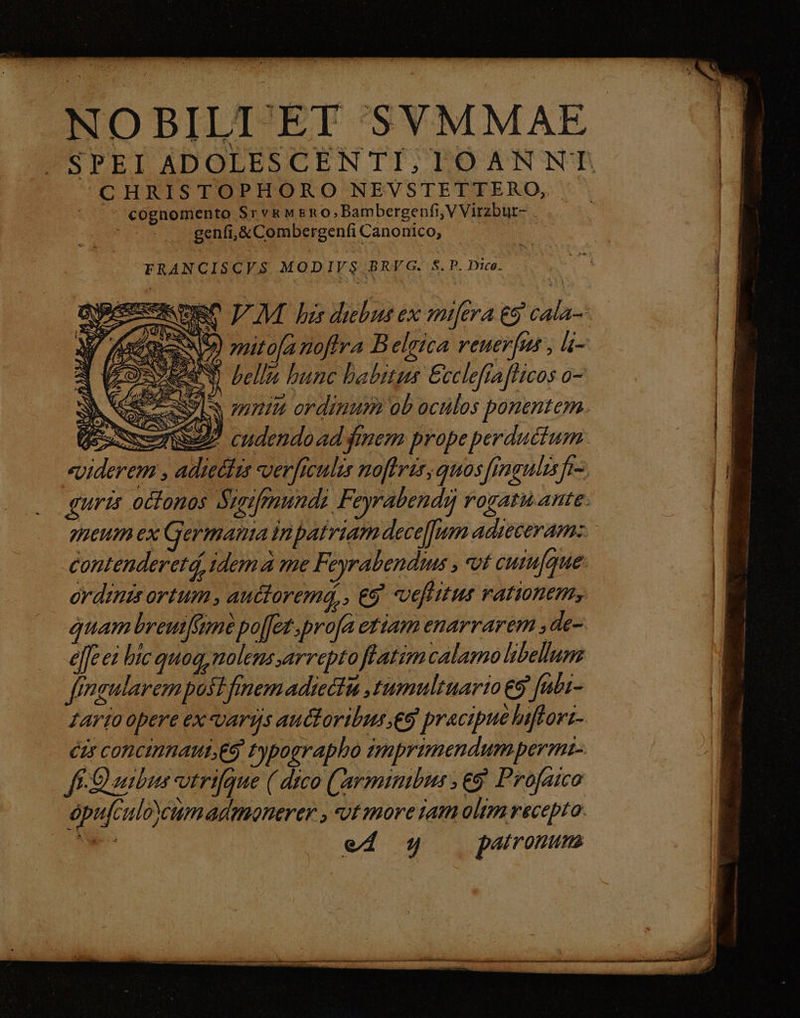 NOBILI ET SVMMAE
SPEI ADOLESCENTI, IOANNI
CHRISTOPHORO NEVSTETTERO,
cognomento STVRMERO, Bambergenſi, VVirzbur-
genſi, & Combergenſi Canonico,
FRANCISCVS MODIVS BRVG. S. P. Dico.
CVM his diebus ex miſera & cala-
mitoſa noſtra Belgica reuerſus, li-
bellū hunc habitus Eccleſiaſticos o-
mniū ordinum ob oculos ponentem
cudendo ad finem prope perductum
viderem, adiectis verſiculis noſtris, quos ſingulis fi-
guris octonos Sigiſmundi Feyrabendij rogatu ante
meum ex Germania in patriam deceſſum adieceram:
contenderetq́, idem à me Feyrabendius, vt cuiuſque
ordinis ortum, auctoremq́, & veſtitus rationem,
quam breuiſſimè poſſet, proſa etiam enarrarem, de-
eſſe ei hic quoq, nolens, arrepto ſtatim calamo libellum
ſingularem poſt finem adiectū, tumultuario & ſubi-
tario opere ex varijs auctoribus, & præcipuè hiſtori-
cis concinnaui, & typographo imprimendum permi-
ſi. Quibus vtriſque (dico Carminibus, & Proſaico
opuſculo) cùm admonerer, vt more iam olim recepto
A ij patronum